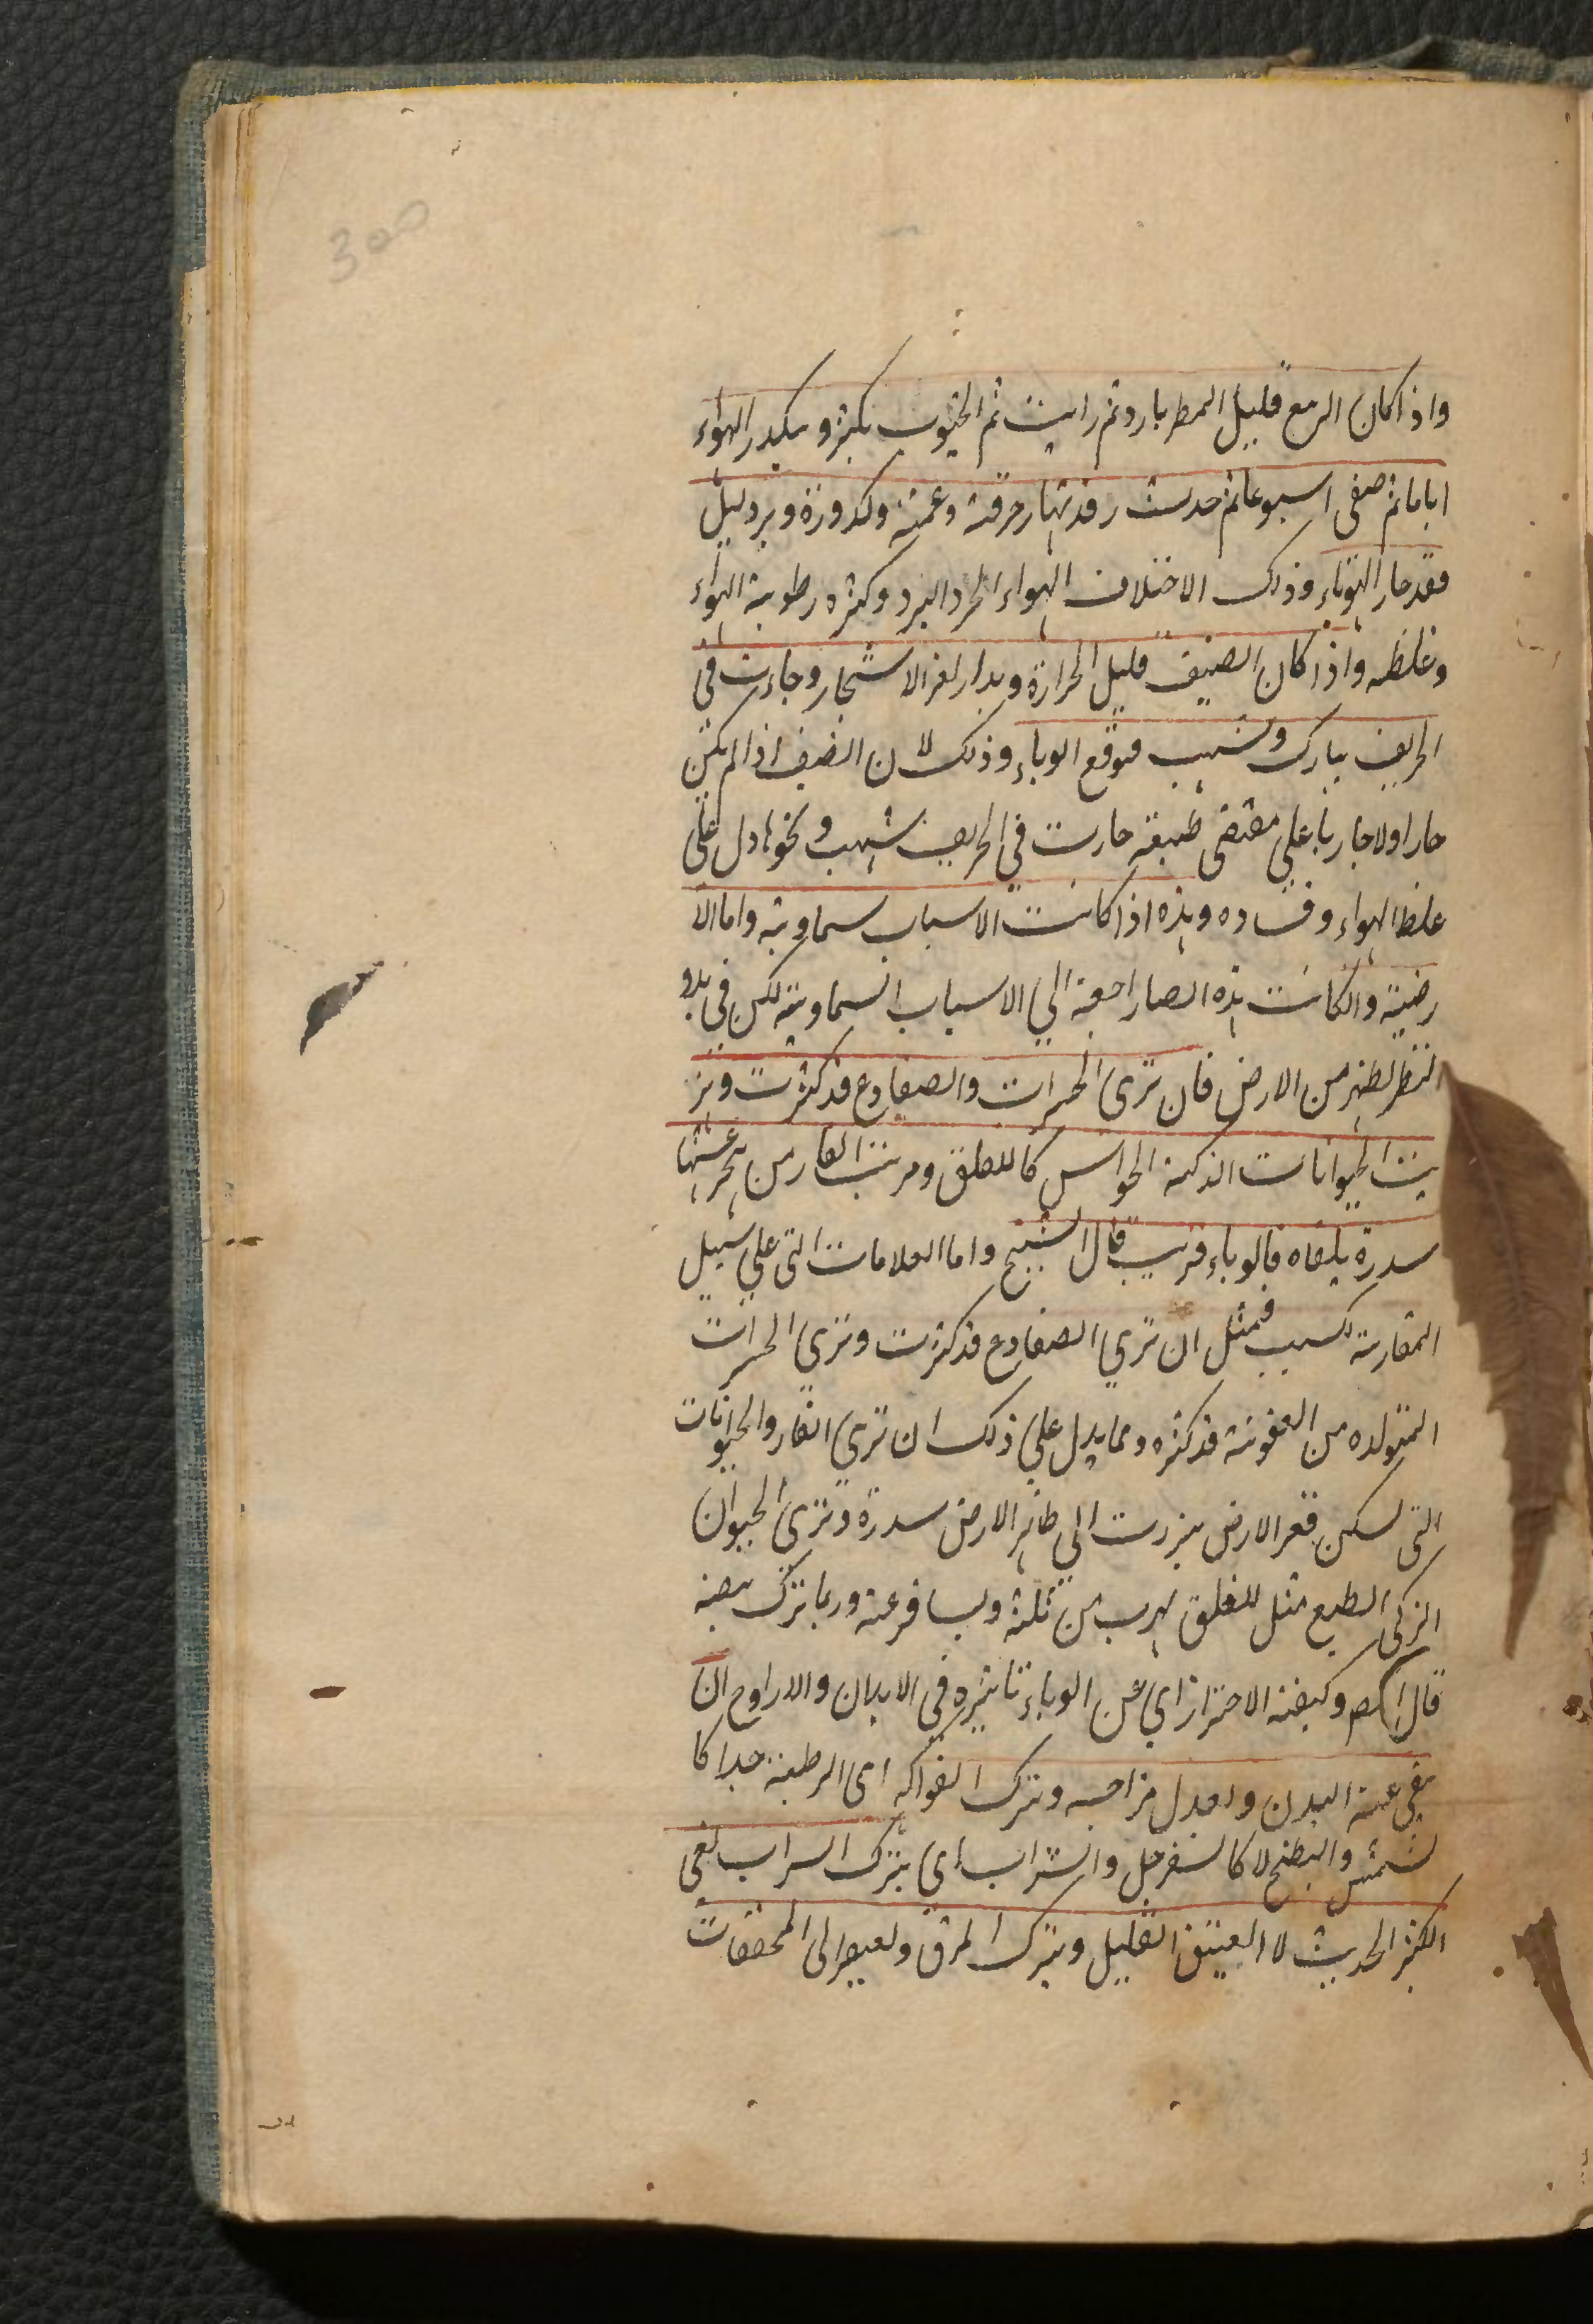 300
واذا كان الربع قليل المطر بارد ثم رايت ثم الجنوب يكثر و يكدر الهواء
اياما ثم صفى اسبوعا ثم حدث رقد نهار حرقة وغمة وكدورة وبرد ليل
فقد حار الوباء وذلك الاختلاف الهواء الحر والبرد وكثره رطوبة الهواء
وغلظه واذا كان الصيف قليل الحرارة و الاشجار وجاءت في
الخريف نيازك وشهب فتوقع الوباء وذلك لان الصيف اذا لم يكن
حارا ولا جاريا على مقتضى طبيعة حارت في الخريف شهب و نحوها دل على
غلظ الهواء وفساده وهذه اذا كانت الاسباب سماوية واما الا
رضية وان كانت هذه ايضا راجعة الى الاسباب السماوية لكن في بدو
النظر تظهر من الارض فان ترى الحشرات والضفادع قد كثرت وتر
يت الحيوانات الذكية الحواس كاللقلق وهربت الفار من
سدرة بلقاه فالوباء قريب قال الشيخ واما العلامات التى على سبيل
المقارنة للسبب فمثل ان ترى الضفادع قد كثرت وترى الحشرات
المتولده من العفونة قد كثره ومما يدل على ذلك ان ترى الفار والحيوانات
التى تسكن قعر الارض يبزرت الى ظاهر الارض سدرة وترى الحيوان
الزكى الطبع مثل اللقلق يهرب من وربما ترك بيضه
قال المص وكيفية الاحتراز اي عن الوباء تاثيره في الابدان والارواح ان
ينقى عنه البدن و يعدل مزاجه وتترك الفواكه اى الرطبة جدا كا
لمشمش والبطيخ لا كالسفرجل والشراب اى يترك الشراب يعني
الكثير الحديث لا العتيق القليل ويترك المرق ويصير الى المجففات